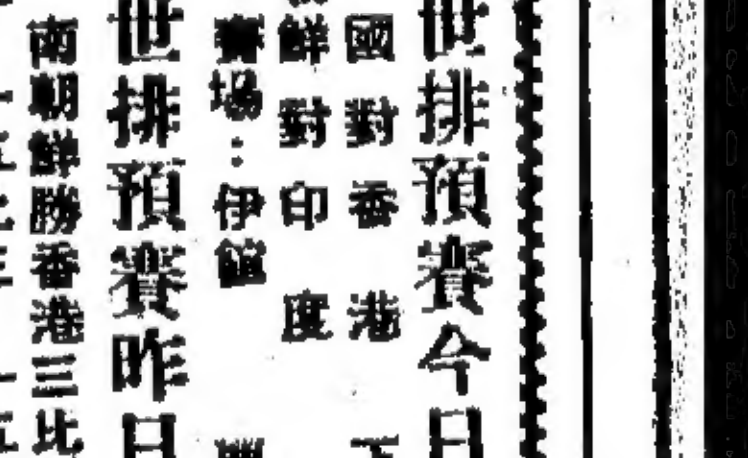 世排預賽今日
國對香港
鮮對印度
賽場：伊館
世排預賽昨日
南朝鮮勝香港三比